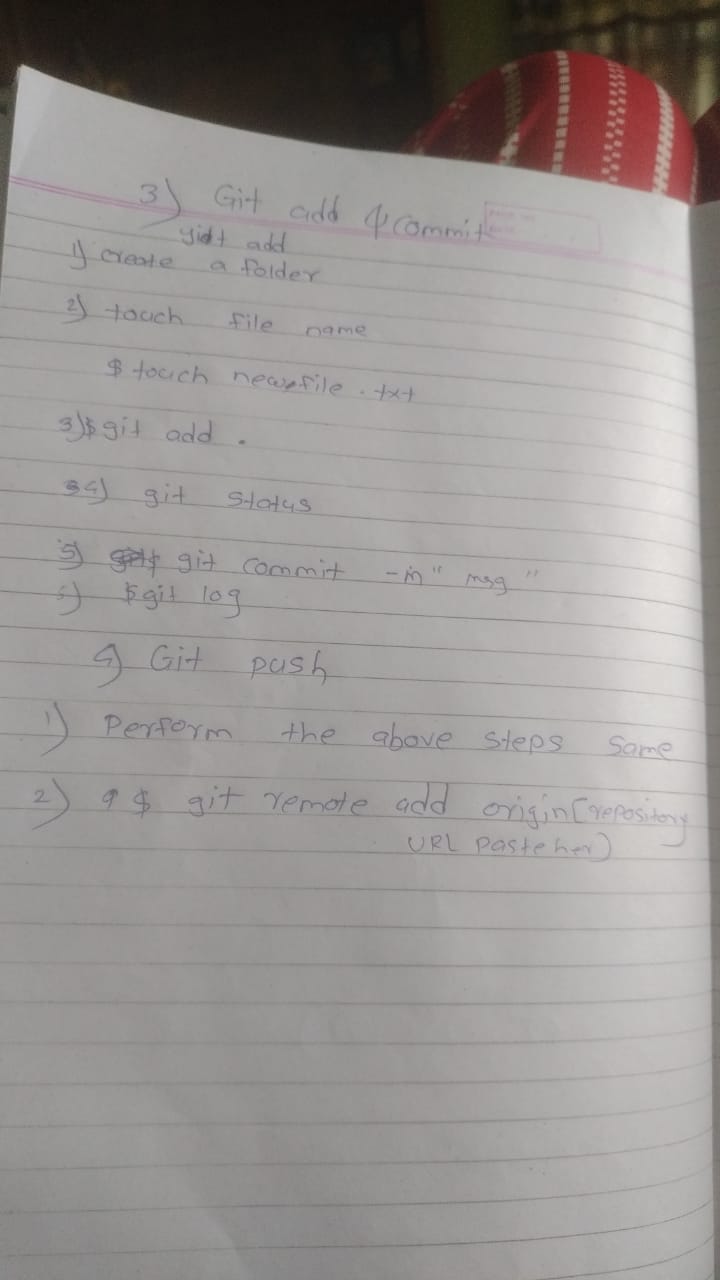 3) Git add & commit
git add
1) create a folder
2) touch file name
$ touch newfile.txt
3) $ git add .
4) git status
5) git commit -m "msg"
$ git log
4) Git push
1) Perform the above steps same
2) $ git remote add origin [repository
URL paste her)